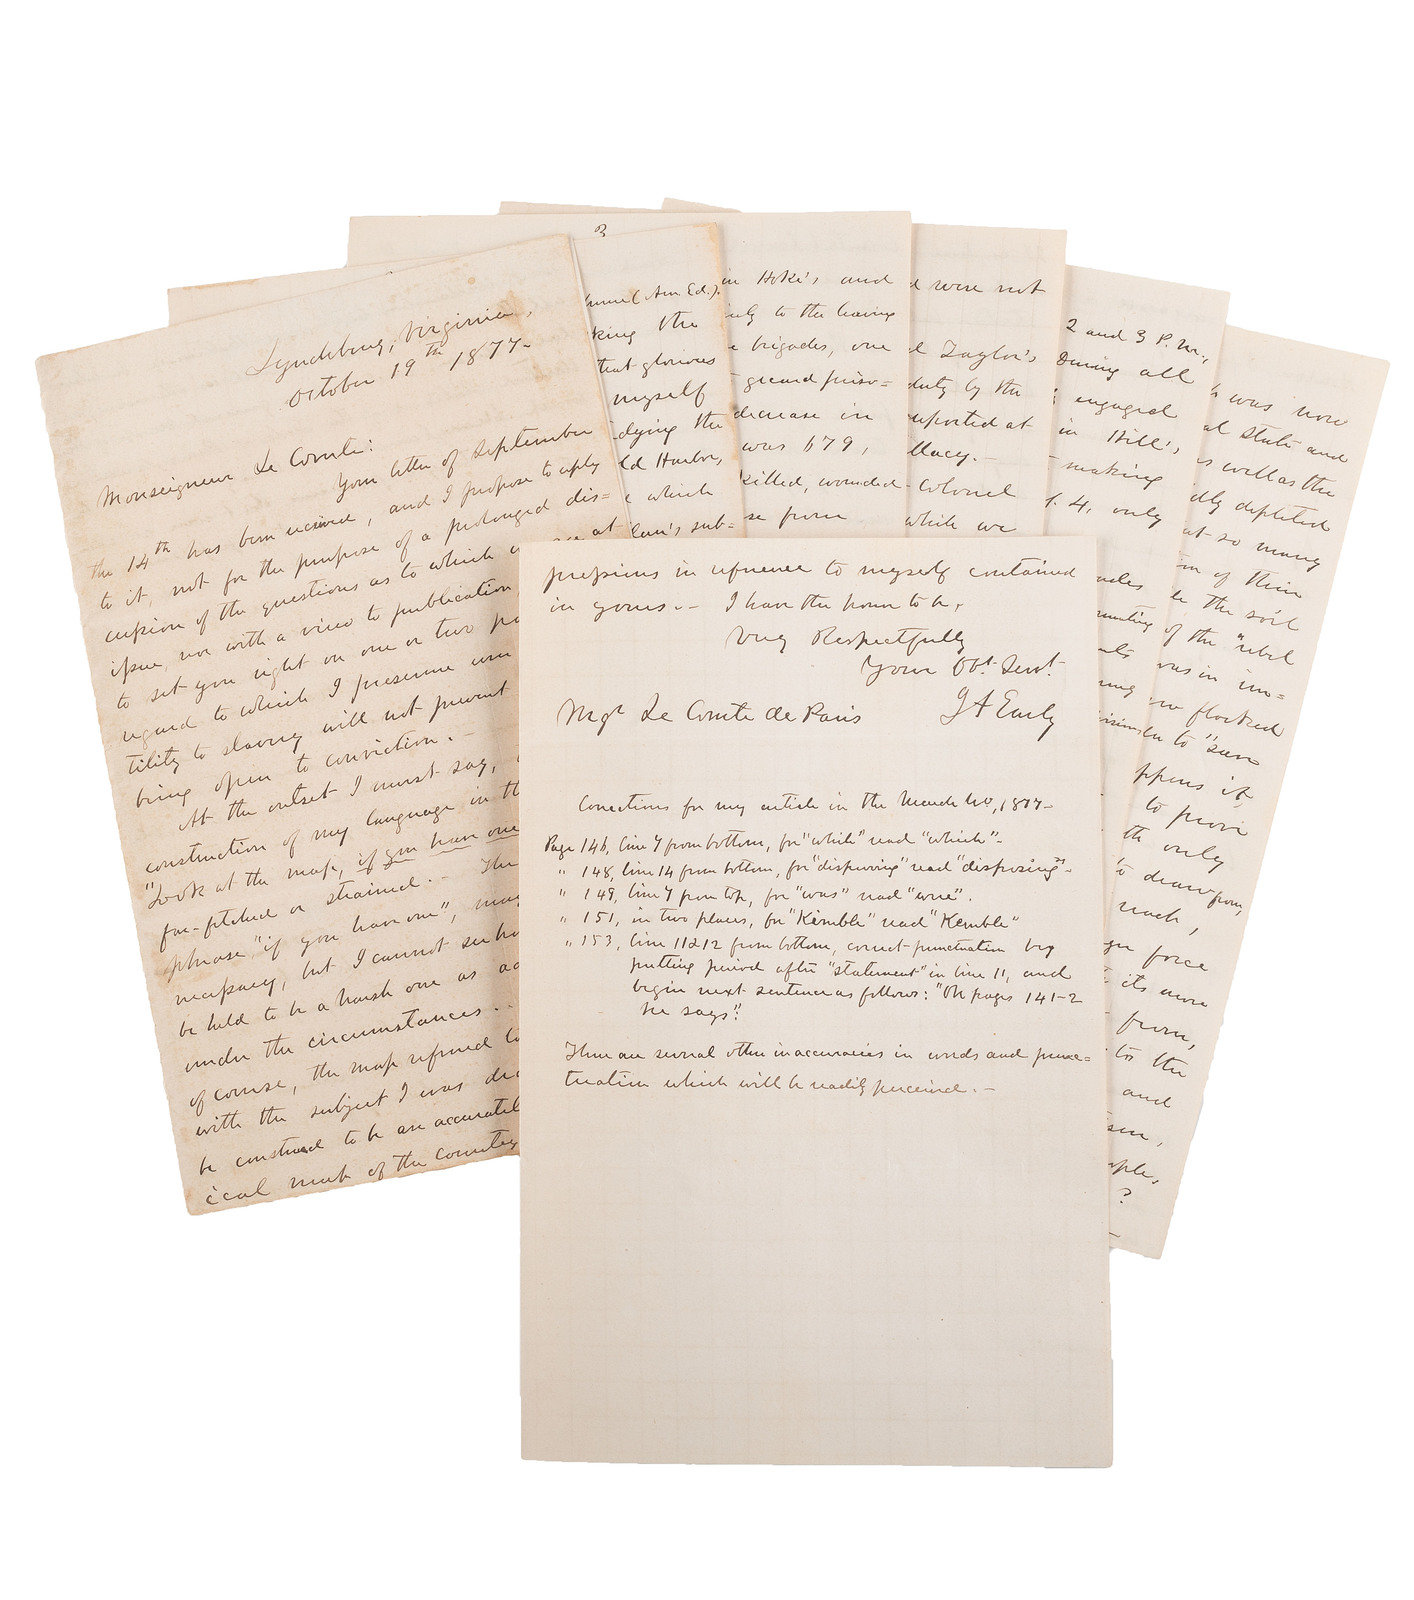 Lynchburg, Virginia,
October 19th 1877-
Monseigneur Le Comte:
Your letter of September
the 14th has been received, and I propose to reply
to it, not for the purpose of a prolonged dis=
cussion of the questions as to which we are at
issue, nor with a view to publication,
to set you right on one or two po
regard to which I presume your
tility to slavery will not prevent
being open to conviction.-
At the outset I must say,
construction of my language in th
"Look at the map, if you have one
far-fetched or strained.- The
phrase, "if you have one", may
necessary, but I cannot see how
be held to be a harsh one as ad
under the circumstances.-
of course, the map referred to
with the subject I was dis
be construed to be an accurate
ical map of the country
3
(Am. Ed.)
king the
that glorious
myself
dying the
ld Harbor,
which
lan's sub=
in Hoke's and
ly to the leaving
brigades, one
guard priso=
decrease in
was 679,
killed, wounded
se from
d were not
l Taylor's
duty by the
reported at
llacy.-
Colonel
which we
2 and 3 P.M.,
During all
engaged
in Hill's,
making
. 4, only
ades
mounting
was now
al State and
s well as the
dly depleted
at so many
on of their
le the soil
of the "rebel
was in im=
w flocked
en to "save
ppens it,
to prove
th only
to draw from,
reach,
ger force
t its more
from,
to the
and
son,
ople,
?
pressions in reference to myself contained
in yours.- I have the honor to be,
Very Respectfully
Your Obt. Servt.
J A Early
Mgr Le Comte de Paris
Corrections for my article in the March No, 1877-
Page 146, line 7 from bottom, for "while" read "which"-
" 148, line 14 from bottom, for "dispersing" read "disposing"-
" 149, line 7 from top, for "was" read "were".
" 151, in two places, for "Kimble" read "Kemble"
" 153, line 11 & 12 from bottom, correct punctuation by
putting period after "statement" in line 11, and
begin next sentence as follows: "On pages 141-2
he says":
There are several other inaccuracies in words and punc=
tuation which will be readily perceived.-